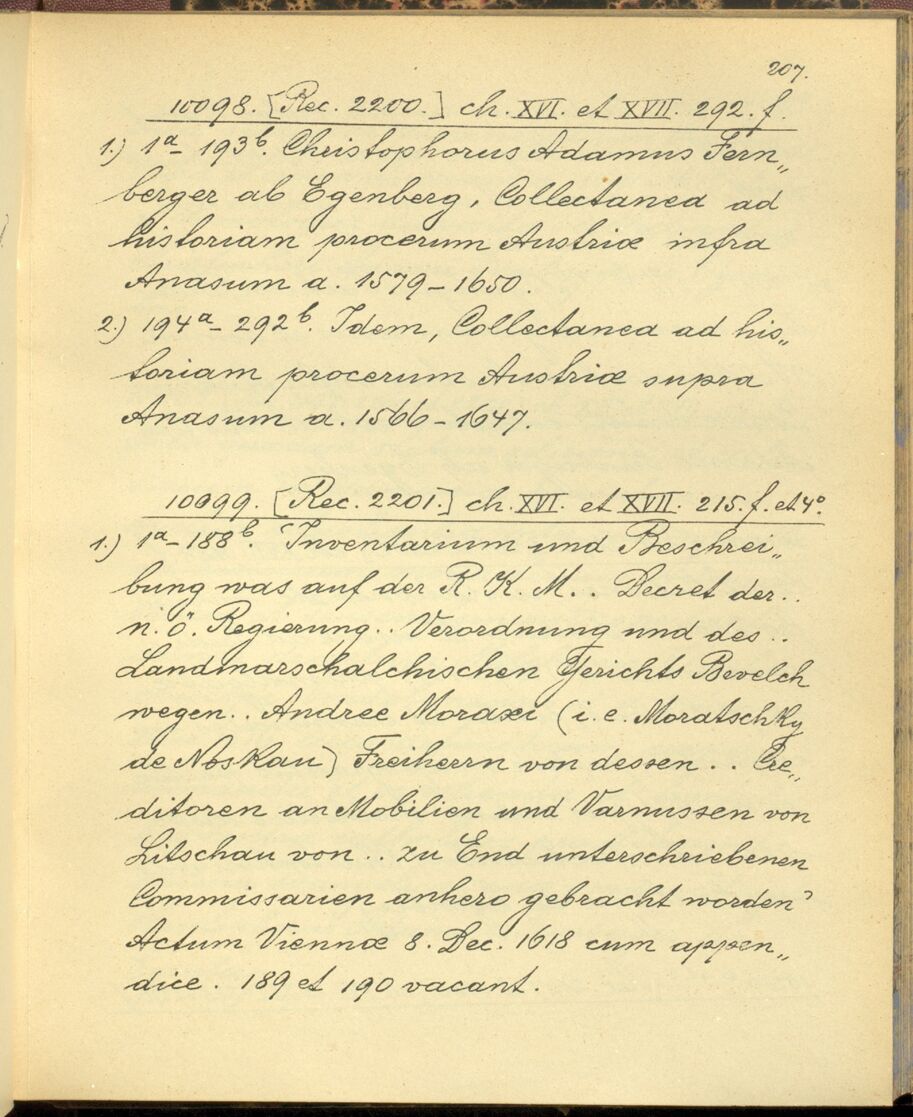 207.
10098. [Rec. 2200.] ch. XVI. et XVII. 292. f.
1.) 1a– 193b. Christophorus Adamus Fern„
berger ab Egenberg, Collectanea ad
historiam procerum Austriæ infra
Anasum a. 1579–1650.
2.) 194a– 292b. Idem, Collectanea ad his„
toriam procerum Austriæ supra
Anasum a. 1566–1647.
10099. [Rec. 2201.] ch. XVI. et XVII. 215. f. et 4°.
1.) 1a–188b. 'Inventarium und Beschrei„
bung was auf der R. K. M. . Decret der..
n. ö. Regierung.. Verordnung und des ..
Landmarschalchischen Gerichts Bevelch
wegen.. Andree Moraxi (i. e. Moratschky
de Noskau) Freiherrn von dessen .. Cre„
ditoren an Mobilien und Varnussen von
Litschau von .. zu End unterschriebenen
Commissarien anhero gebracht worden'
Actum Viennæ 8. Dec. 1618 cum appen„
dice. 189 et 190 vacant.